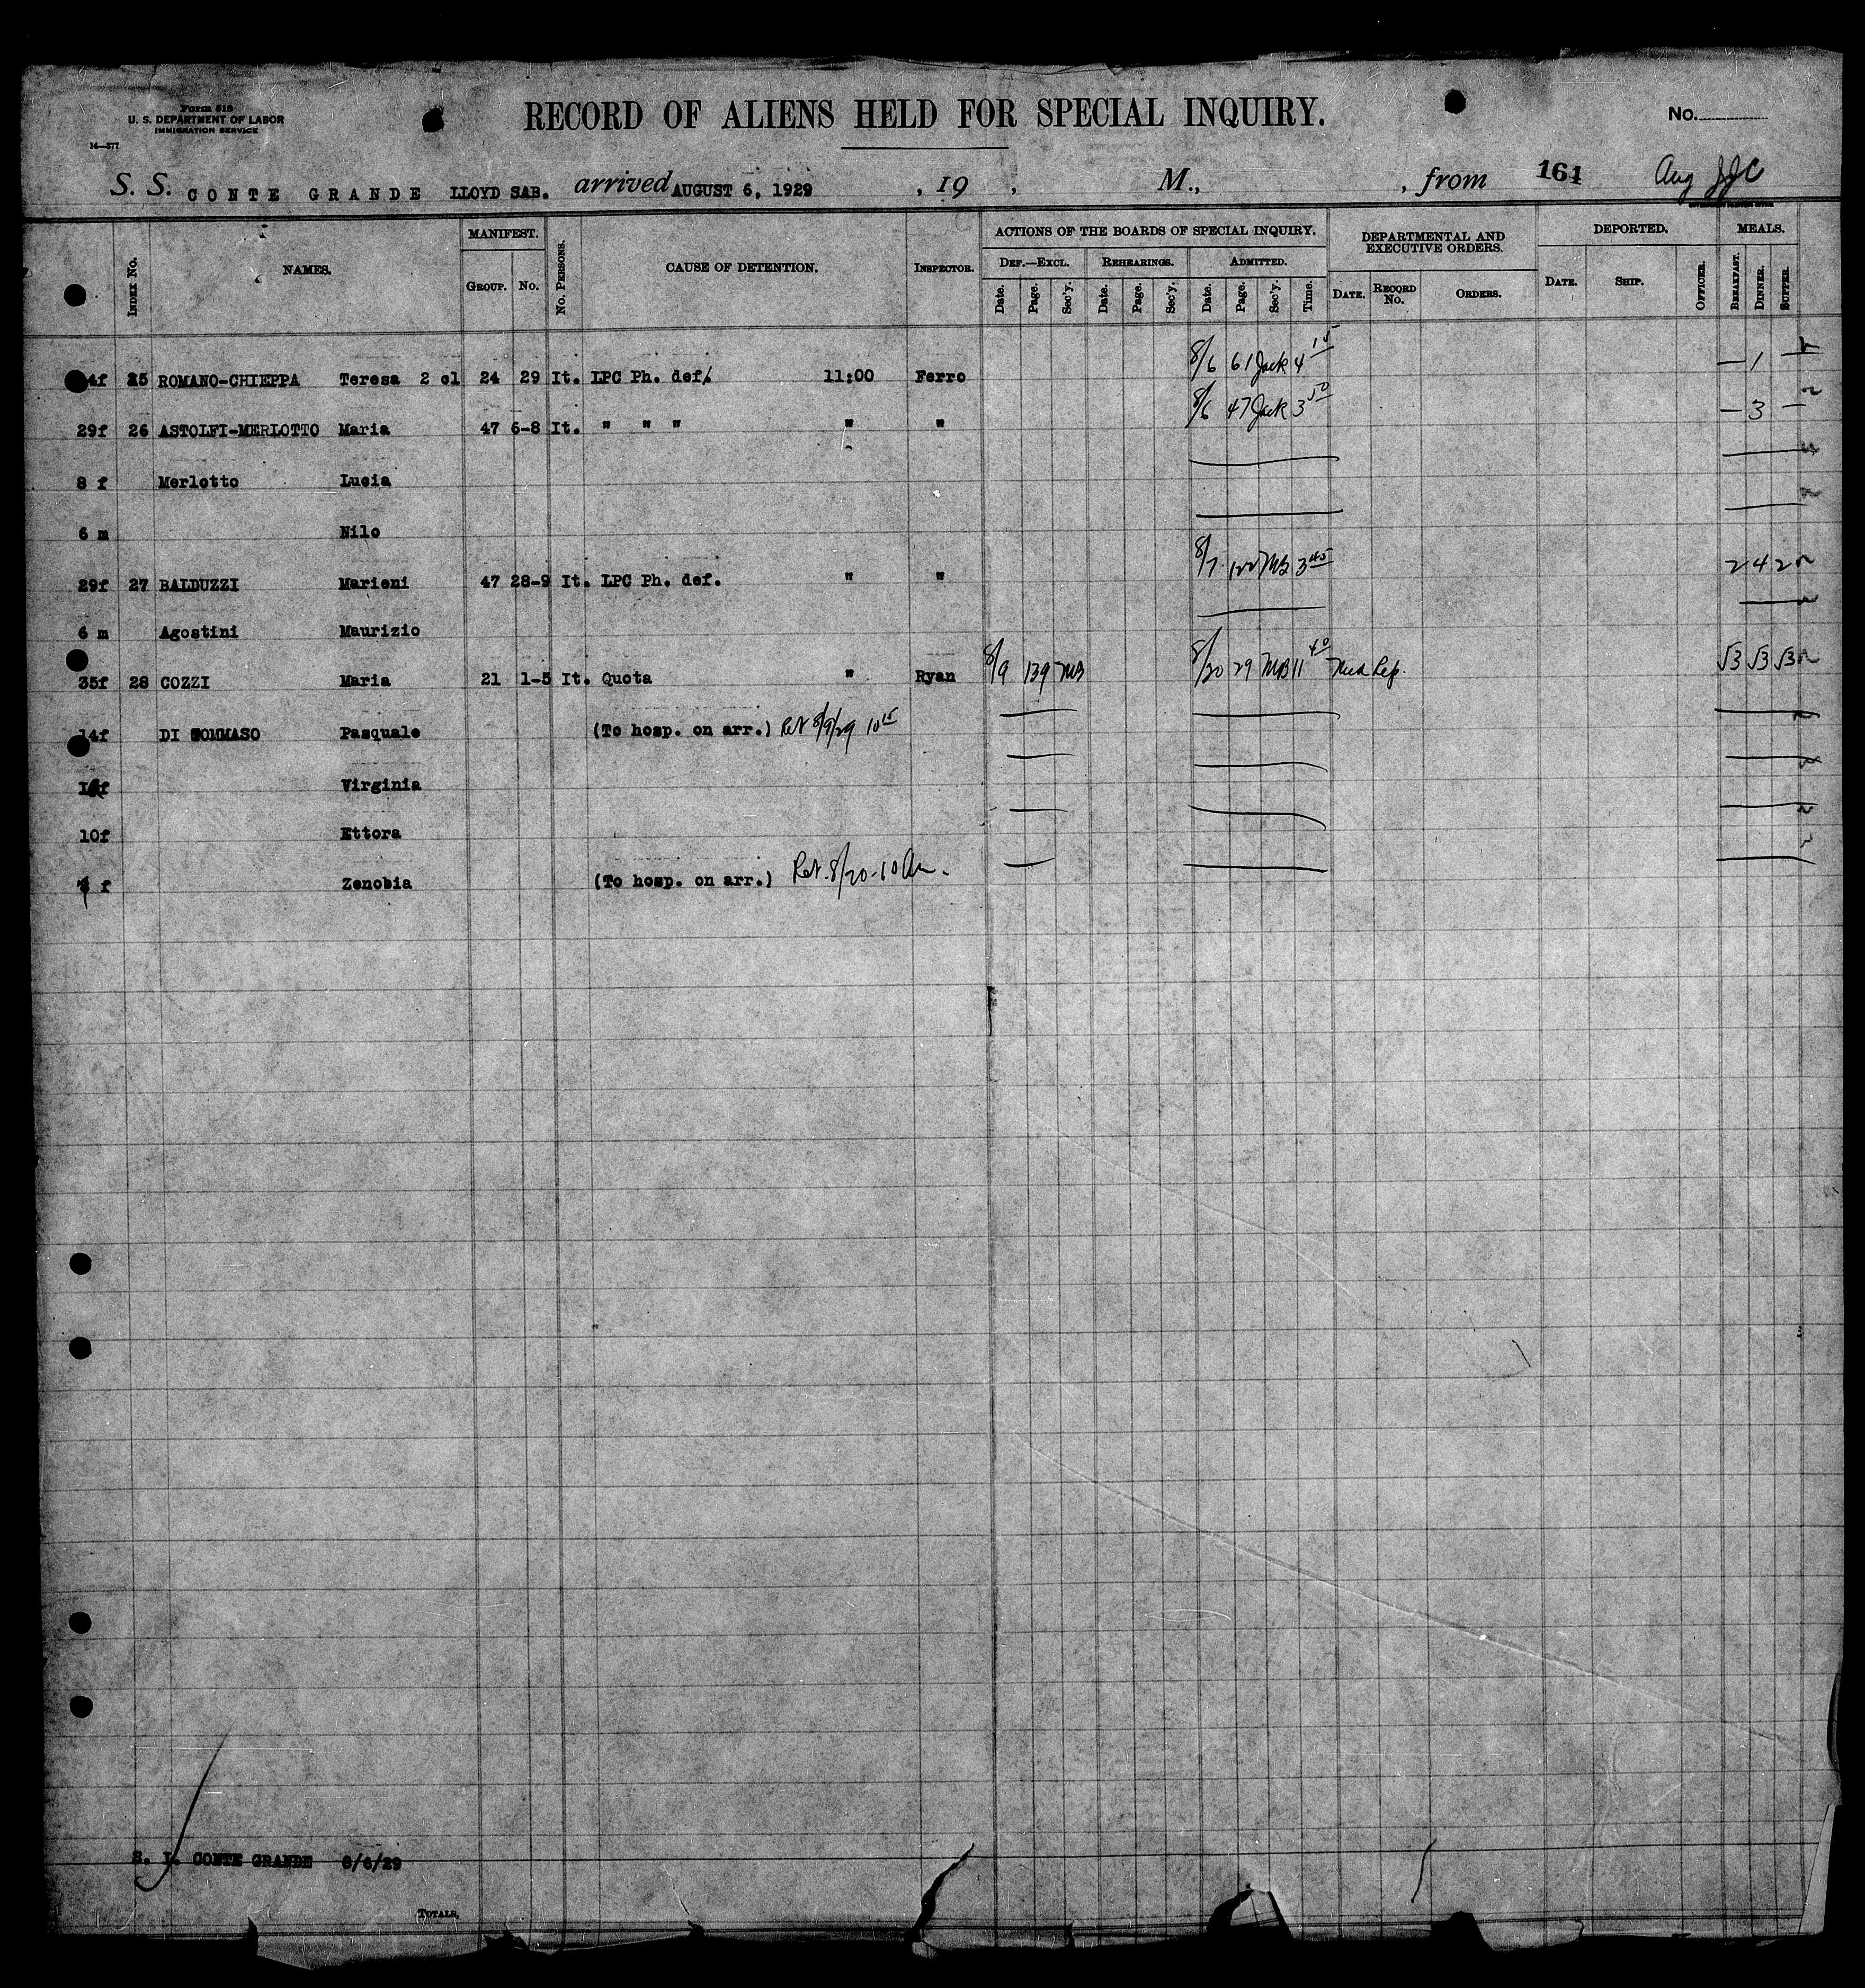 Form 518
U. S. DEPARTMENT OF LABOR
IMMIGRATION SERVICE
16—377
RECORD OF ALIENS HELD FOR SPECIAL INQUIRY.
No.
S. S. CONTE GRANDE LLOYD SAB. arrived AUGUST 6, 1929 , 19 , M., , from 161 Aug
INDEX NO.
NAMES.
MANIFEST.
GROUP. NO.
NO. PERSONS.
CAUSE OF DETENTION.
INSPECTOR.
ACTIONS OF THE BOARDS OF SPECIAL INQUIRY.
DEF.—EXCL. REHEARINGS. ADMITTED.
Date. Page. Sec'y. Date. Page. Sec'y. Date. Page. Sec'y. Time.
DEPARTMENTAL AND EXECUTIVE ORDERS.
DATE. RECORD NO. ORDERS.
DEPORTED.
DATE. SHIP. OFFICER.
MEALS.
BREAKFAST. DINNER. SUPPER.
4f 25 ROMANO-CHIEPPA Teresa 2 cl 24 29 It. LPC Ph. def. 11:00 Ferro 8/6 61 Jack 4 15 — 1 —
29f 26 ASTOLFI-MERLOTTO Maria 47 6-8 It. " " " " " 8/6 47 Jack 3 50 — 3 —
8 f Merlotto Lucia
6 m Nilo
29f 27 BALDUZZI Marieni 47 28-9 It. LPC Ph. def. " " 8/7 122 MB 3 45 2 4 2
6 m Agostini Maurizio
35f 28 COZZI Maria 21 1-5 It. Quota " Ryan 8/9 139 MB 8/20 29 MB 11 40 √3 √3 √3
14f DI TOMMASO Pasquale (To hosp. on arr.) Ret 8/9/29 10 15
Virginia
10f Ettora
f Zenobia (To hosp. on arr.) Ret. 8/20-10 am.
S. I. CONTE GRANDE 8/6/29
TOTALS,